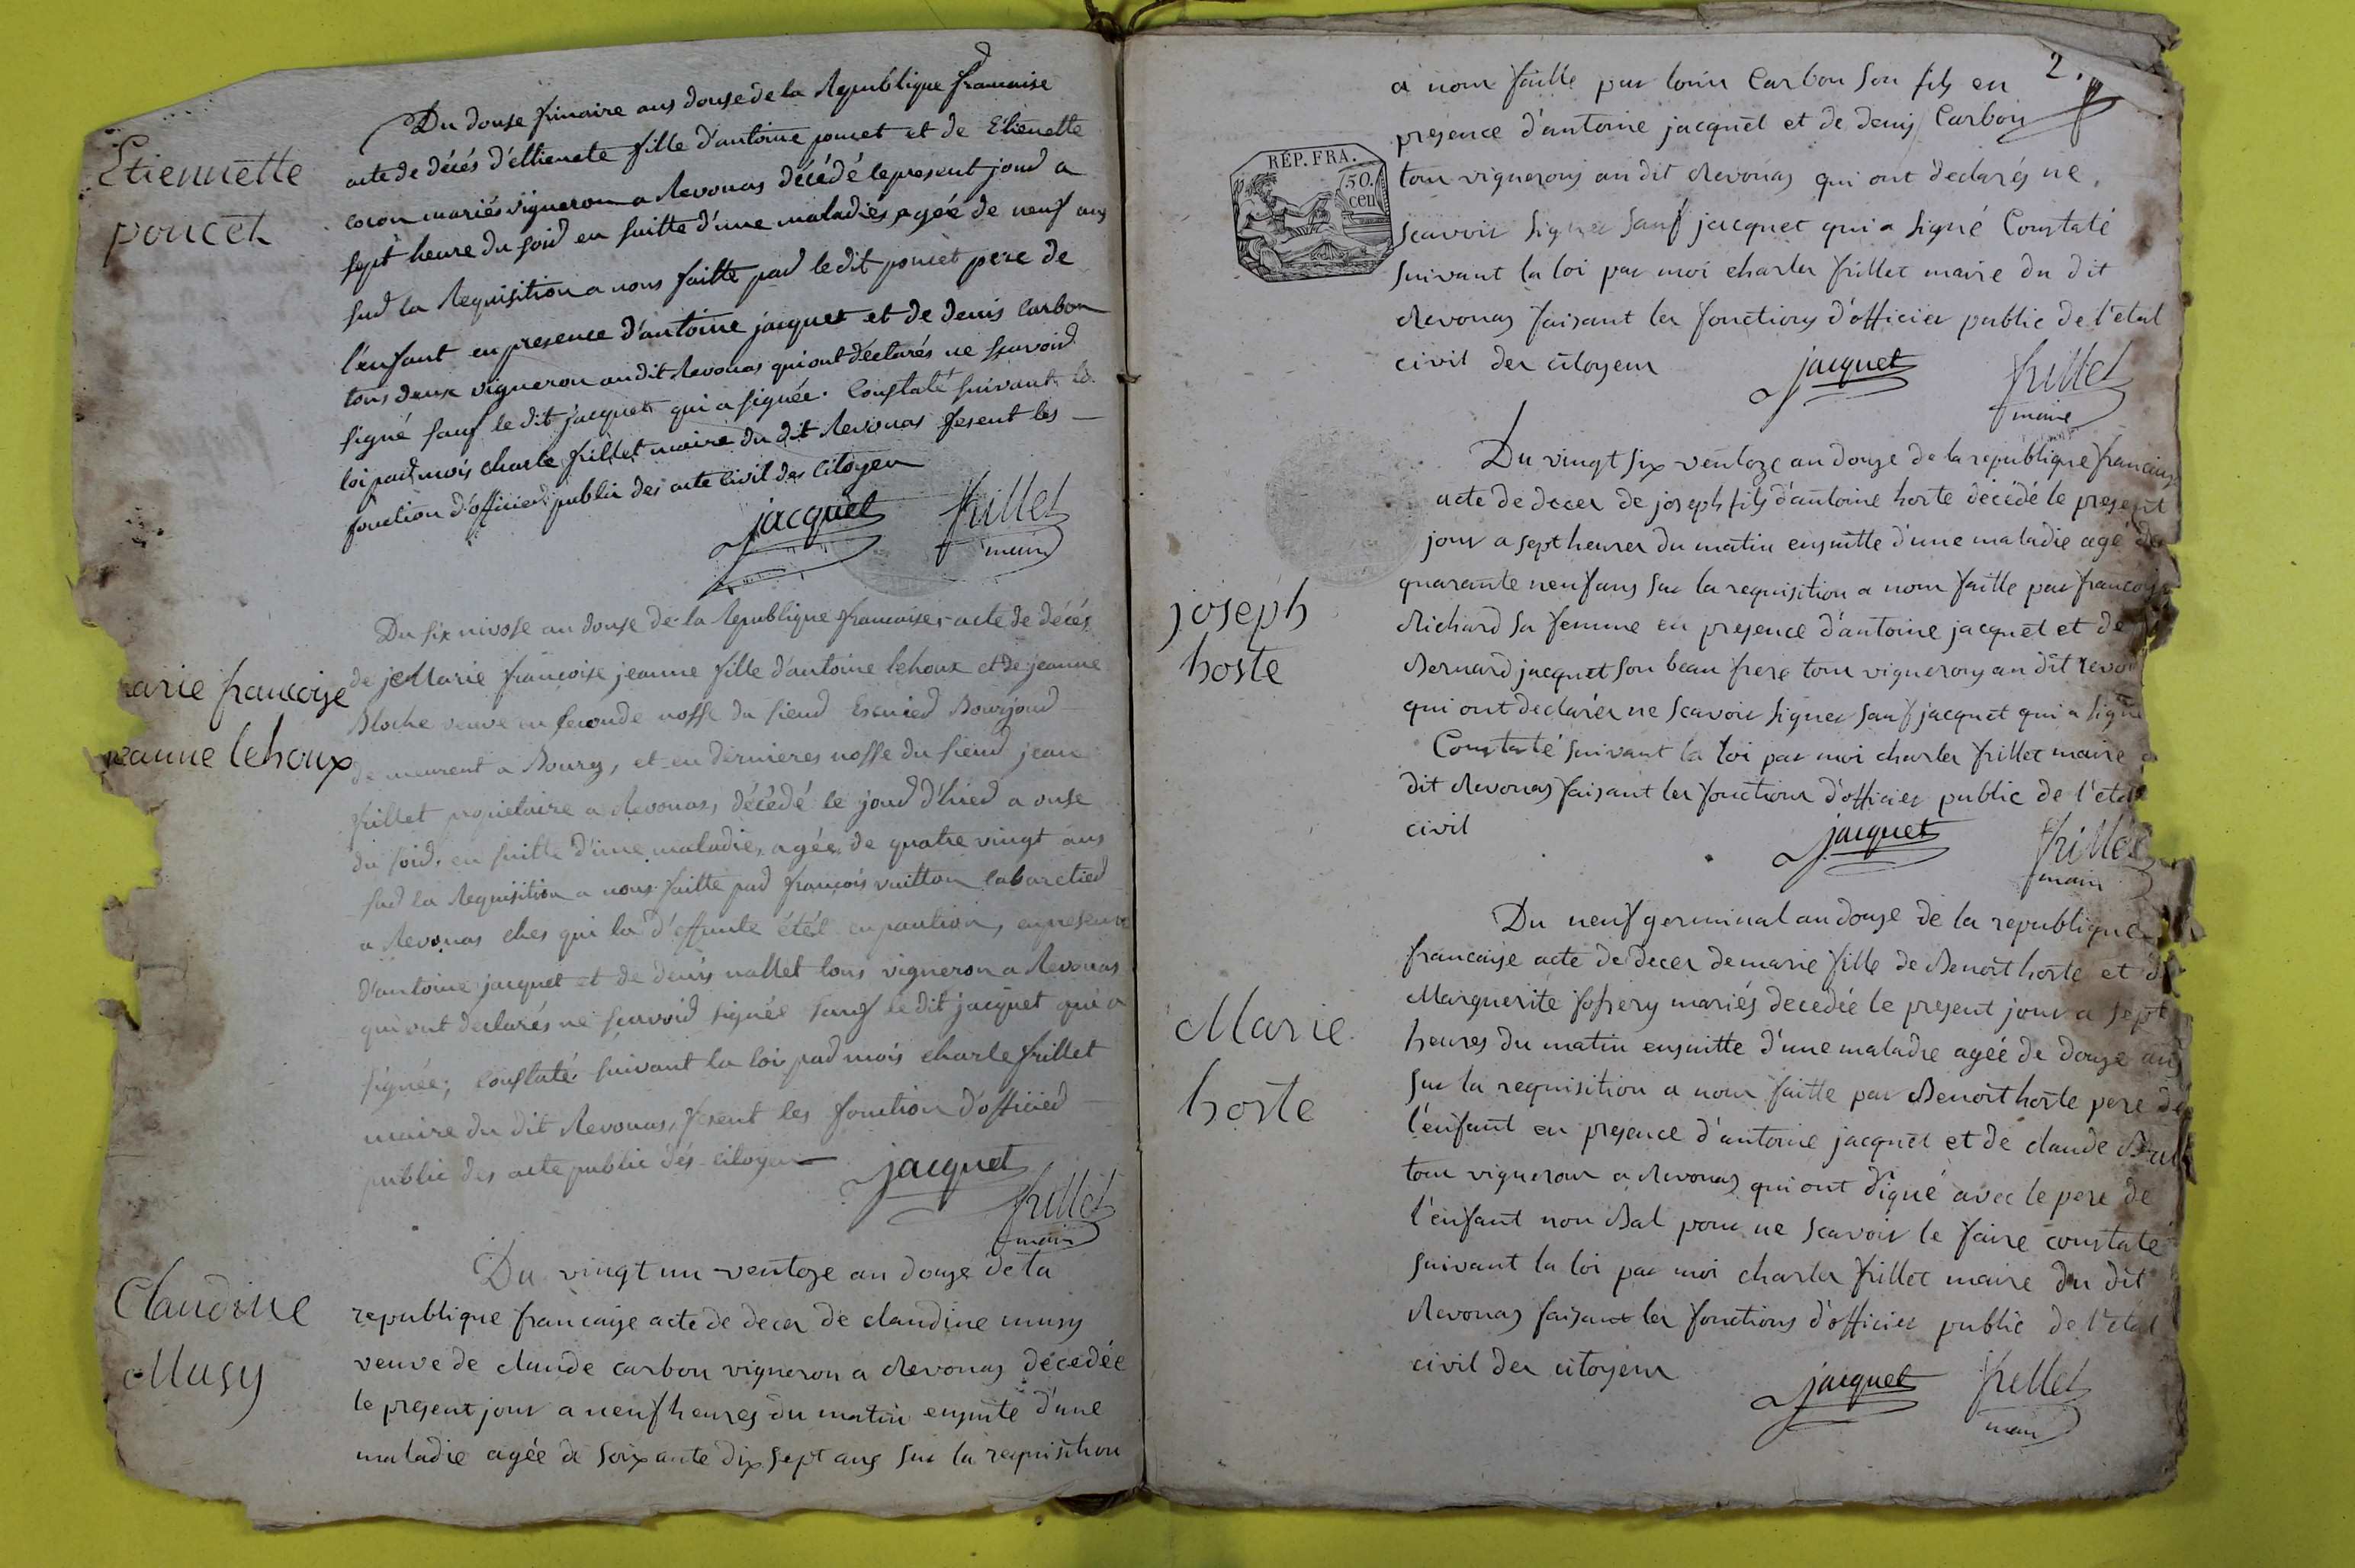 Etiennette
poncet
Du douse frimaire ans douse de la Republique francaise
acte de décés d'ettienete fille d'antoine poncet et de Etienette
coron mariés vigneron a Revonas décédé le present jour a
sept heure du soir en suitte d'une maladies, agéé de neuf ans
sur la Requisition a nous faitte par le dit poncet pere de
l'enfant en presence d'antoine jacquet et de denis Carbon
tous deux vigneron au dit Revonas qui ont déclarés ne scavoir
signé sauf le dit jacquet qui a signée. Constaté suivant la
loi par mois charle frillet maire du dit Revonas fesent les
fonction d'officier public des acte civil des Citoyen
jacquet frillet
maire
arie francoise
jeanne lehoux
Du six nivose an douse de la Republique francaises acte de décés
de je Marie françoise jeanne fille d'antoine lehoux et de jeanne
Bloche veuve en seconde nosse du sieur Bourjour
de meurent a Bourg, et en dernieres nosse du sieur jean
frillet propietaire a Revonas, décédé le jour d'hier a onse
du soir, en suitte d'une maladie, agée, de quatre vingt ans
sur la Requisition a nous faitte par françois vuitton Cabaretier
a Revonas ches qui la d'effunte étét en pantion, en presence
d'antoine jacquet et de denis nallet tous vigneron a Revonas
qui ont declarés ne scavoir signée sauf le dit jacquet qui a
signée; Constaté suivant la loi par mois charle frillet
maire du dit Revonas, fesent les fonction d'officier
public des acte public dés citoyen
jacquet
frillet
maire
Claudine
Musy
Du vingt un ventoze an douze de la
republique francaise acte de deces de claudine musy
veuve de claude carbon vigneron a Revonas décedée
le present jour a neuf heures du matin ensuite d'une
maladie agée de soixante dix sept ans sur la requisition
2.
a nous faitte par louis Carbon son fils en
presence d'antoine jacquet et de denis Carbon
tous vignerons au dit Revonas qui ont declarés ne
RÉP. FRA.
50.
cen
scavoir signer sauf jacquet qui a signé Constaté
suivant la loi par moi charles frillet maire du dit
Revonas faisant les fonctions d'officier public de l'etat
civil des citoyens
jacquet frillet
maire
joseph
hoste
Du vingt six ventoze an douze de la republique francaise
acte de deces de joseph fils d'antoine hoste décédé le present
jour a sept heures du matin ensuitte d'une maladie agé de
quarante neuf ans sur la requisition a nous faitte par francoise
Richard sa femme en presence d'antoine jacquet et de
Bernard jacquet son beau frere tous vignerons au dit revonas
qui ont declarés ne scavoir signer sauf jacquet qui a signé
Constaté suivant la loi par moi charles frillet maire
dit Revonas faisant les fonctions d'officier public de l'etat
civil
jacquet frillet
maire
Marie
hoste
Du neuf germinal an douze de la republique
francaise acte de deces de marie fille de Benoit hoste et de
Marguerite mariés decedée le present jour a sept
heures du matin ensuitte d'une maladie agée de douze ans
sur la requisition a nous faitte par Benoit hoste pere de
l'enfant en presence d'antoine jacquet et de claude
tous vignerons a Revonas qui ont signé avec le pere de
l'enfant non Bal pour ne scavoir le faire constaté
suivant la loi par moi charles frillet maire du dit
Revonas faisant les fonctions d'officier public de l'etat
civil des citoyens
jacquet frillet
maire